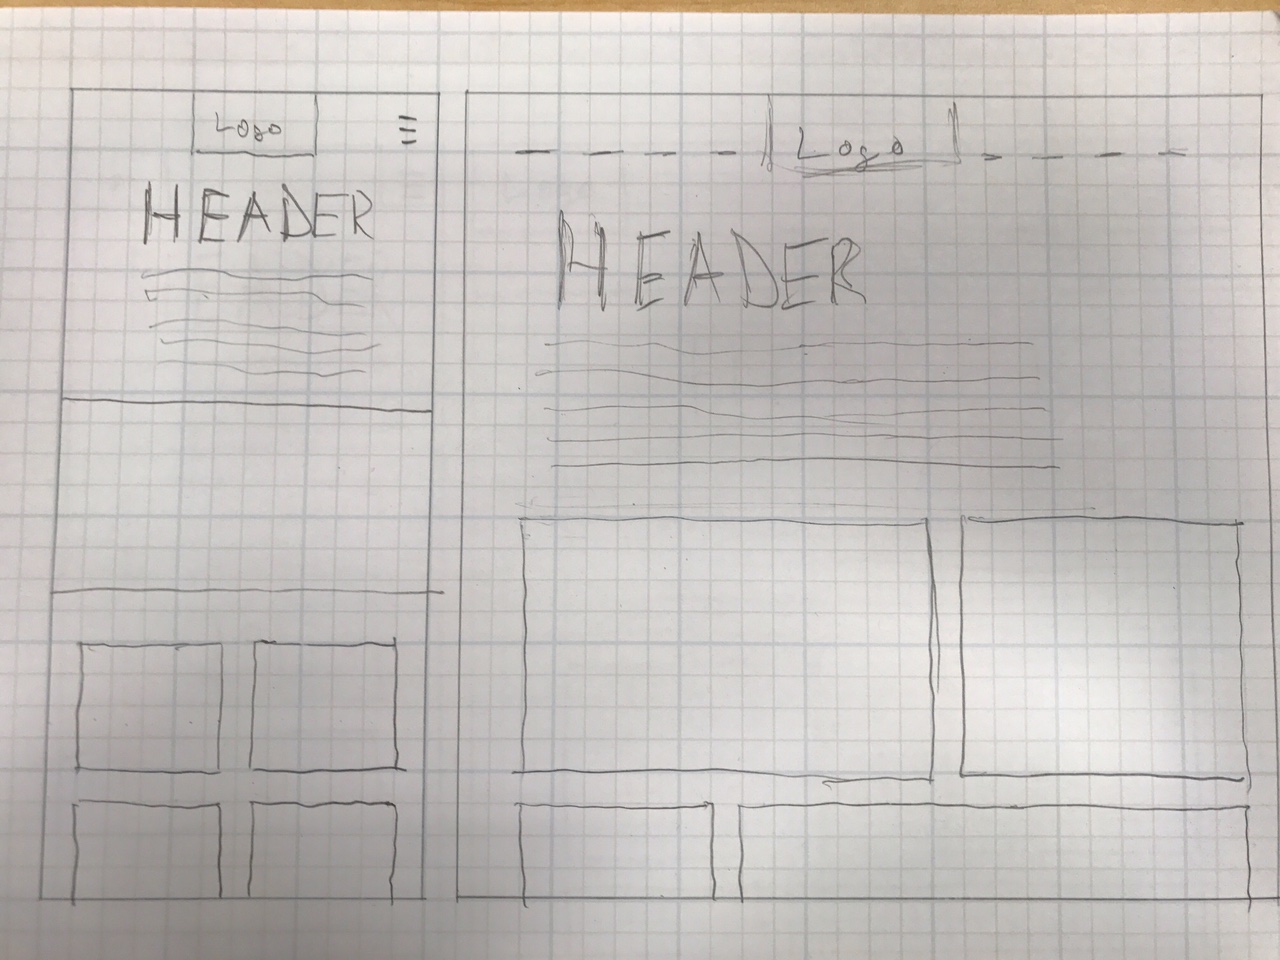 Logo
HEADER
Logo
HEADER